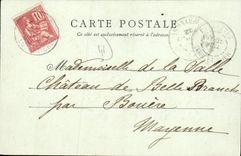 CARTE POSTALE
Ce côté est exclusivement réservé à l'adresse
10
Mademoiselle de la Salle
Château de Belle Branche
par Bouère
Mayenne